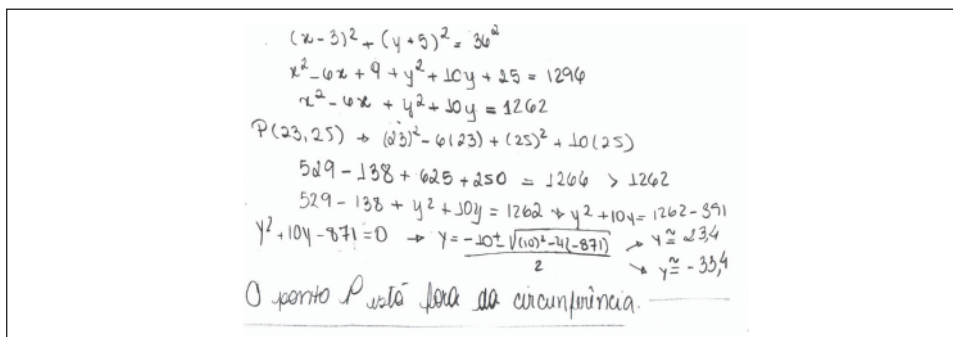 (x-3)² + (y+5)² = 36²
x² - 6x + 9 + y² + 10y + 25 = 1296
x² - 6x + y² + 10y = 1262
P(23,25) → (23)² - 6(23) + (25)² + 10(25)
529 - 138 + 625 + 250 = 1266 > 1262
529 - 138 + y² + 10y = 1262 → y² + 10y = 1262 - 391
y² + 10y - 871 = 0 → y = (-10 ± √((10)² - 4(-871)))/2 → y ≅ 23,4
→ y ≅ -33,4
O ponto P está fora da circunferência.